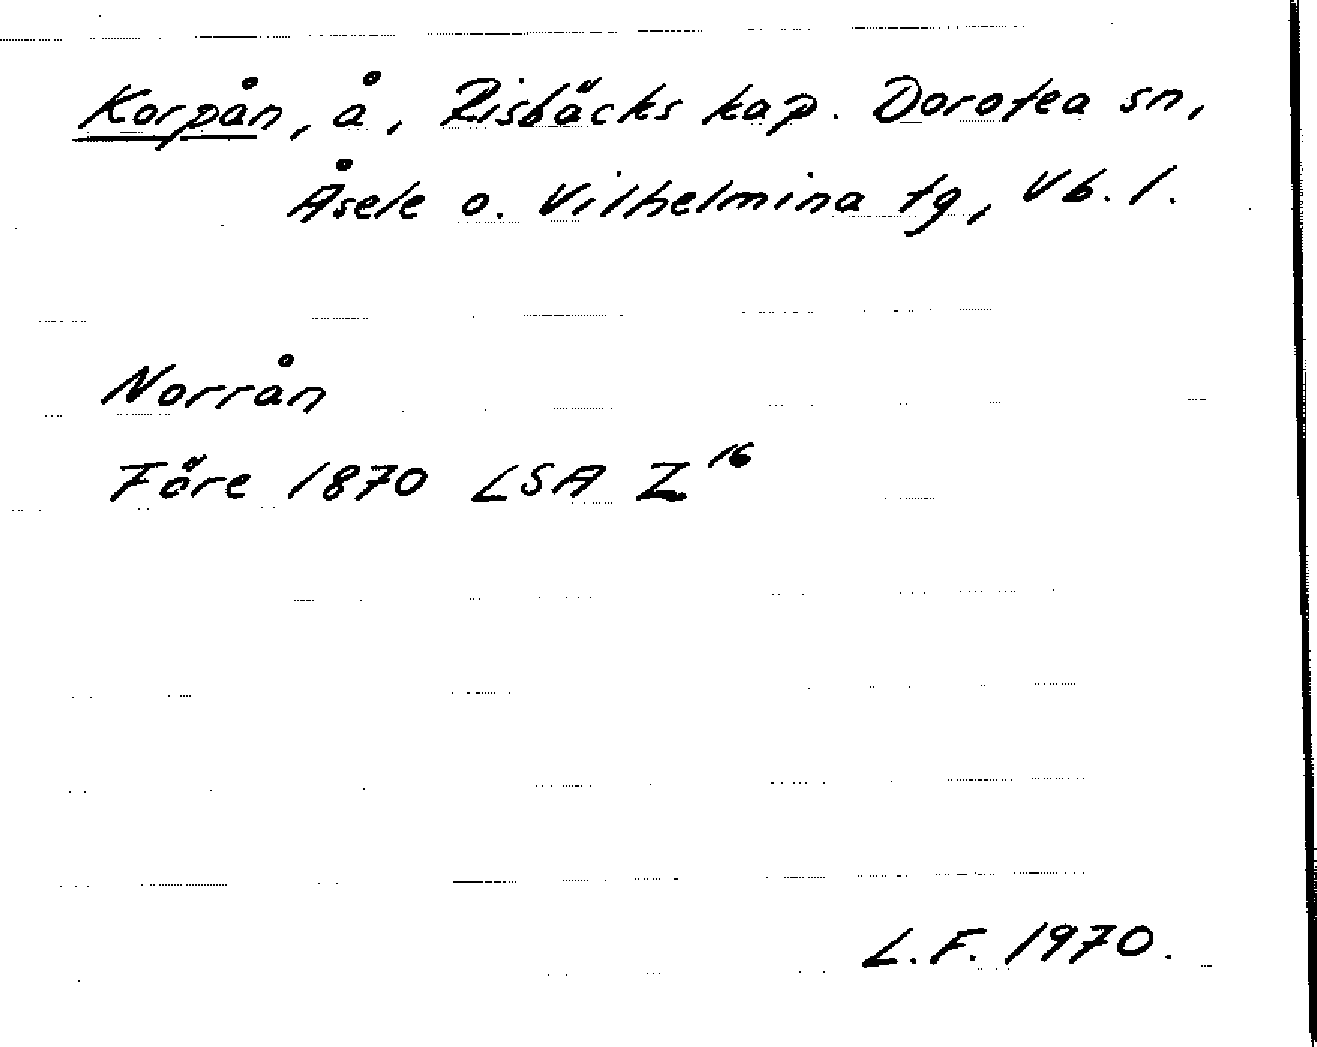 Korpån, å, Risbäcks kap. Dorotea sn,
Åsele o. Vilhelmina tg, Vb. l.
Norrån
Före 1870 LSA Z¹⁶
L.F. 1970.